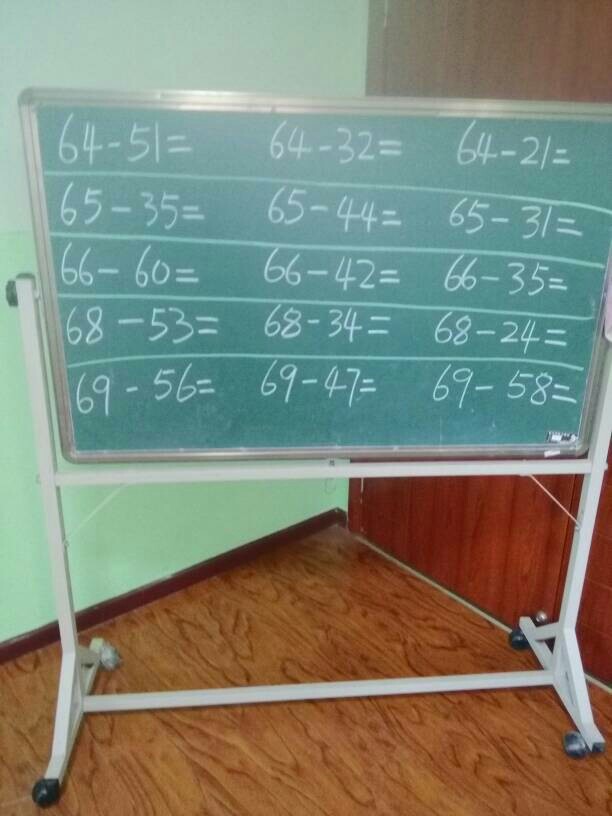 64-51= 64-32= 64-21=
65-35= 65-44= 65-31=
66-60= 66-42= 66-35=
68-53= 68-34= 68-24=
69-56= 69-47= 69-58=